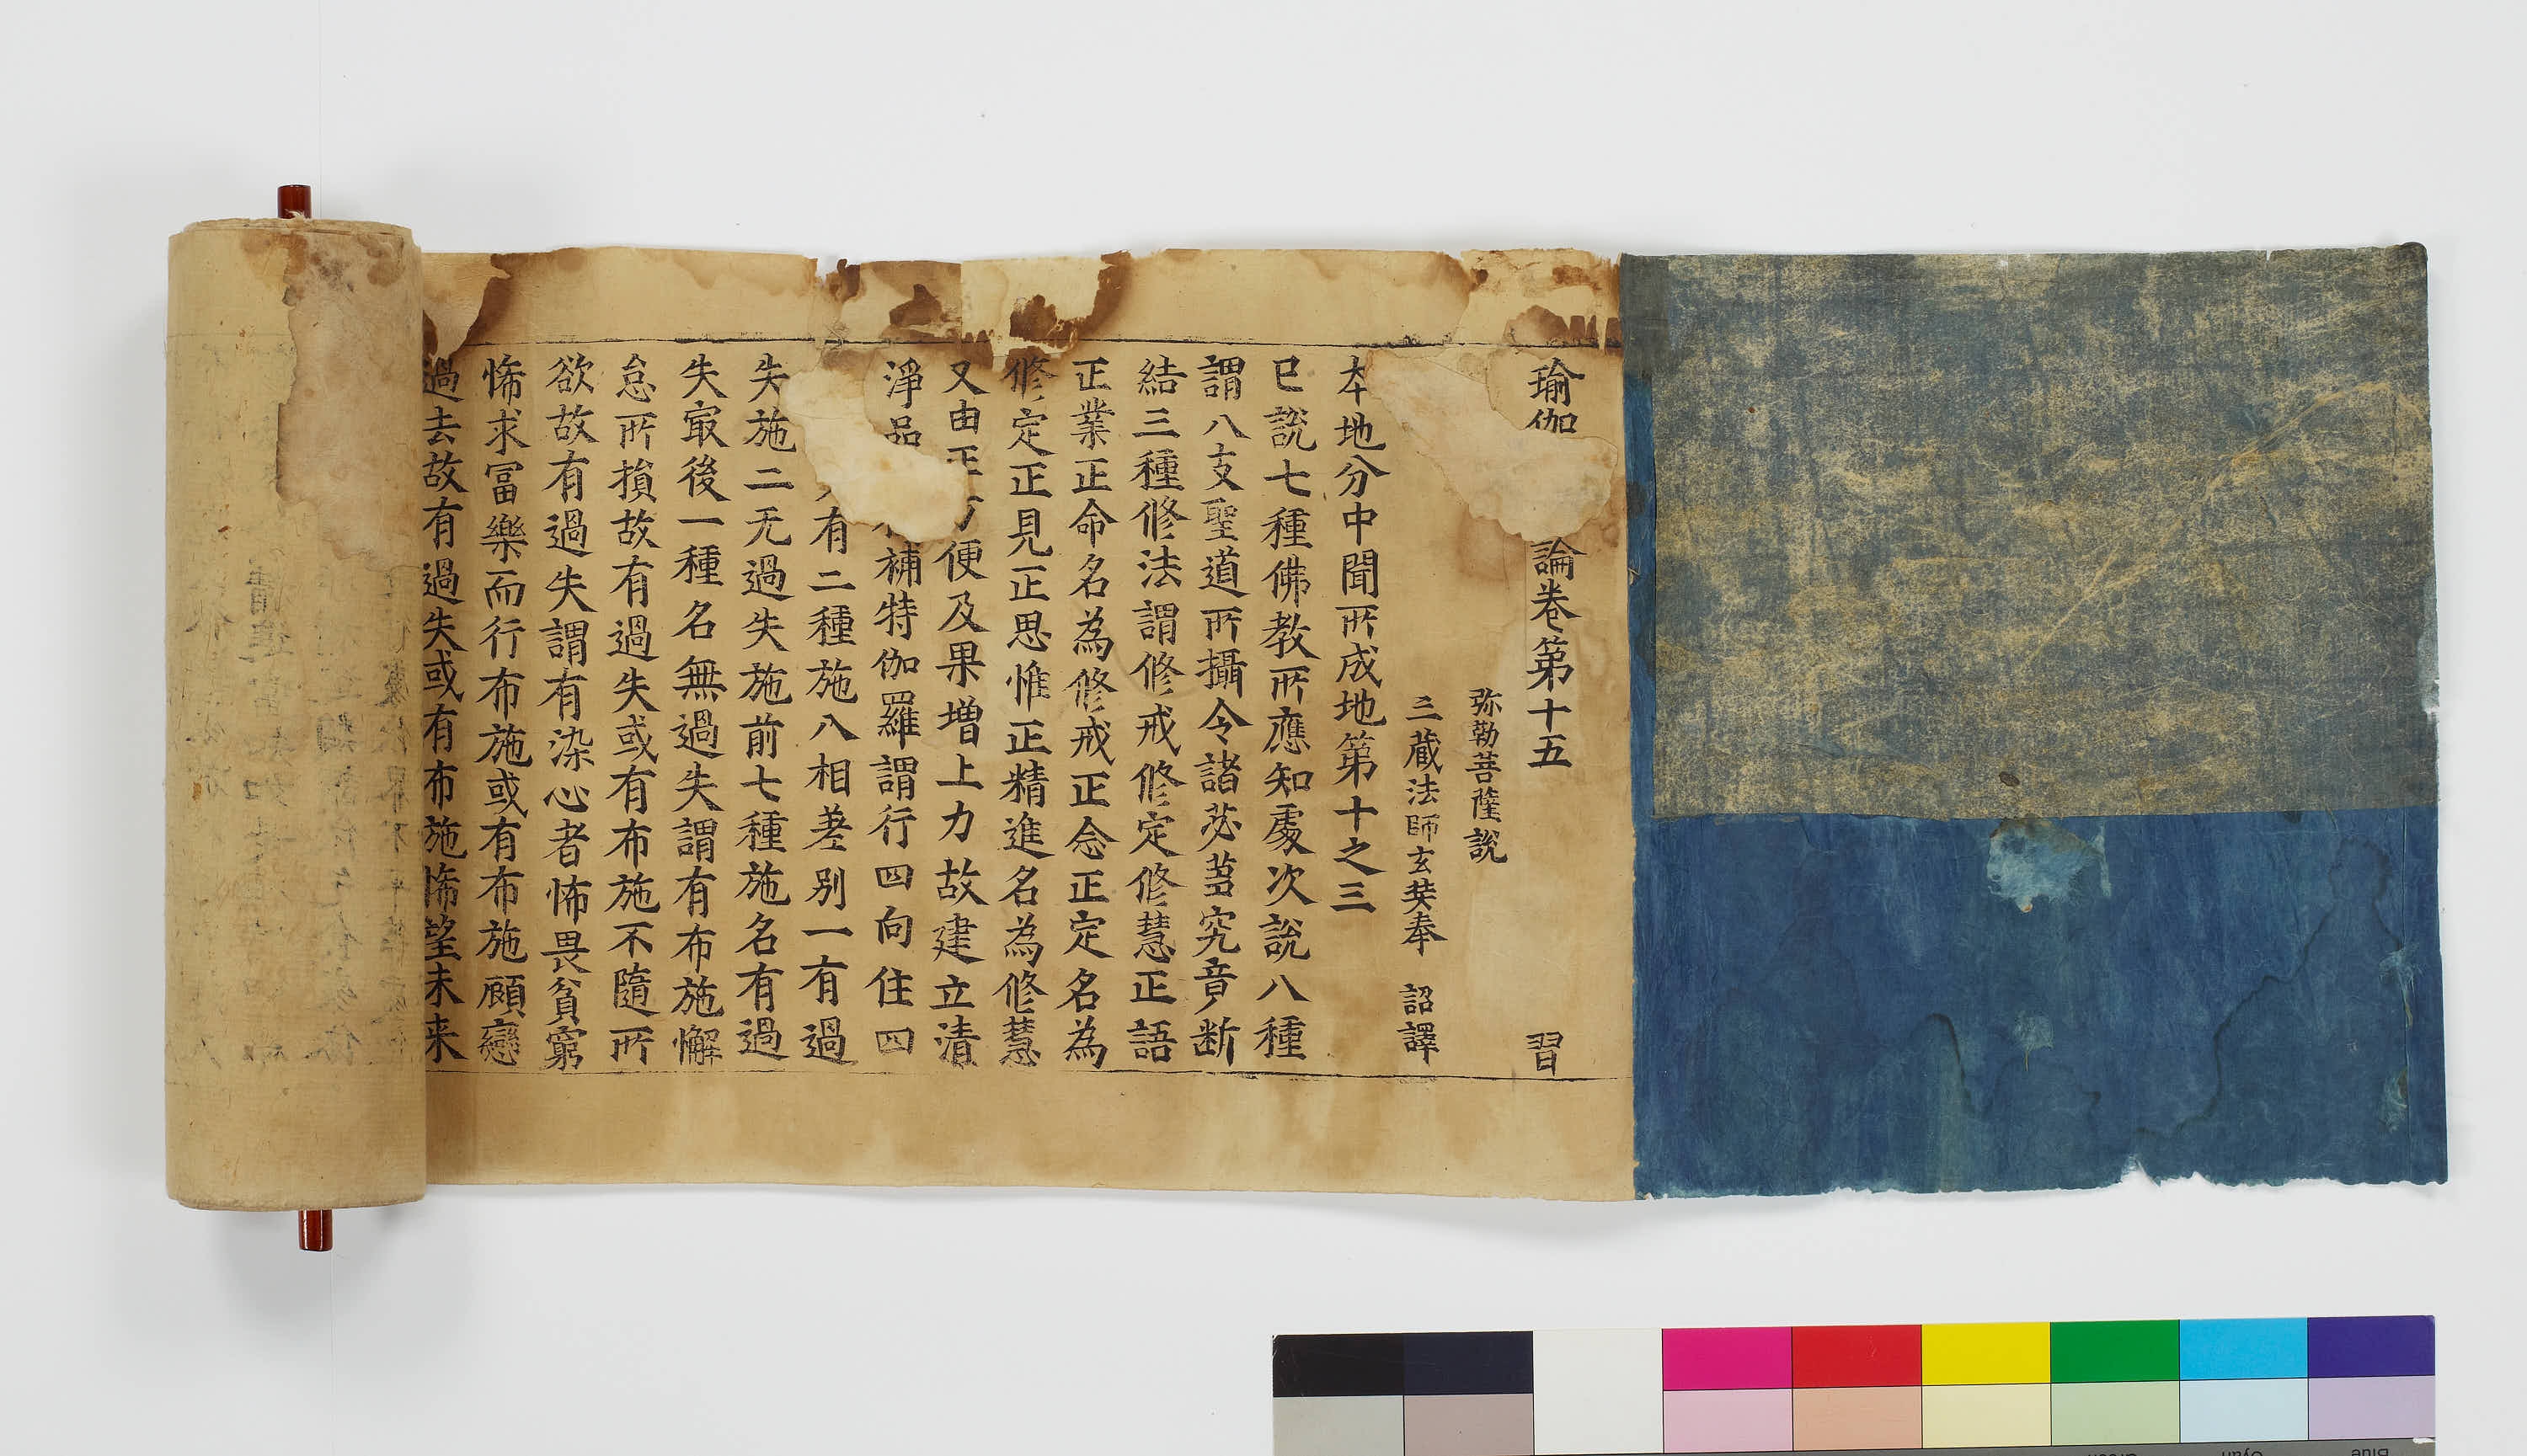 瑜伽論卷第十五 習
弥勒菩薩說
三蔵法師玄奘奉 詔譯
本地分中聞所成地第十之三
已說七種佛教所應知處次說八種
謂八支聖道所攝令諸苾蒭究竟断
結三種修法謂修戒修定修慧正語
正業正命名為修戒正念正定名為
修定正見正思惟正精進名為修慧
又由正方便及果増上力故建立清
淨品補特伽羅謂行四向住四
有二種施八相差別一有過
失施二无過失施前七種施名有過
失㝡後一種名無過失謂有布施懈
怠所損故有過失或有布施不隨所
欲故有過失謂有染心者怖畏貧窮
悕求冨樂而行布施或有布施顧戀
過去故有過失或有布施悕望未来